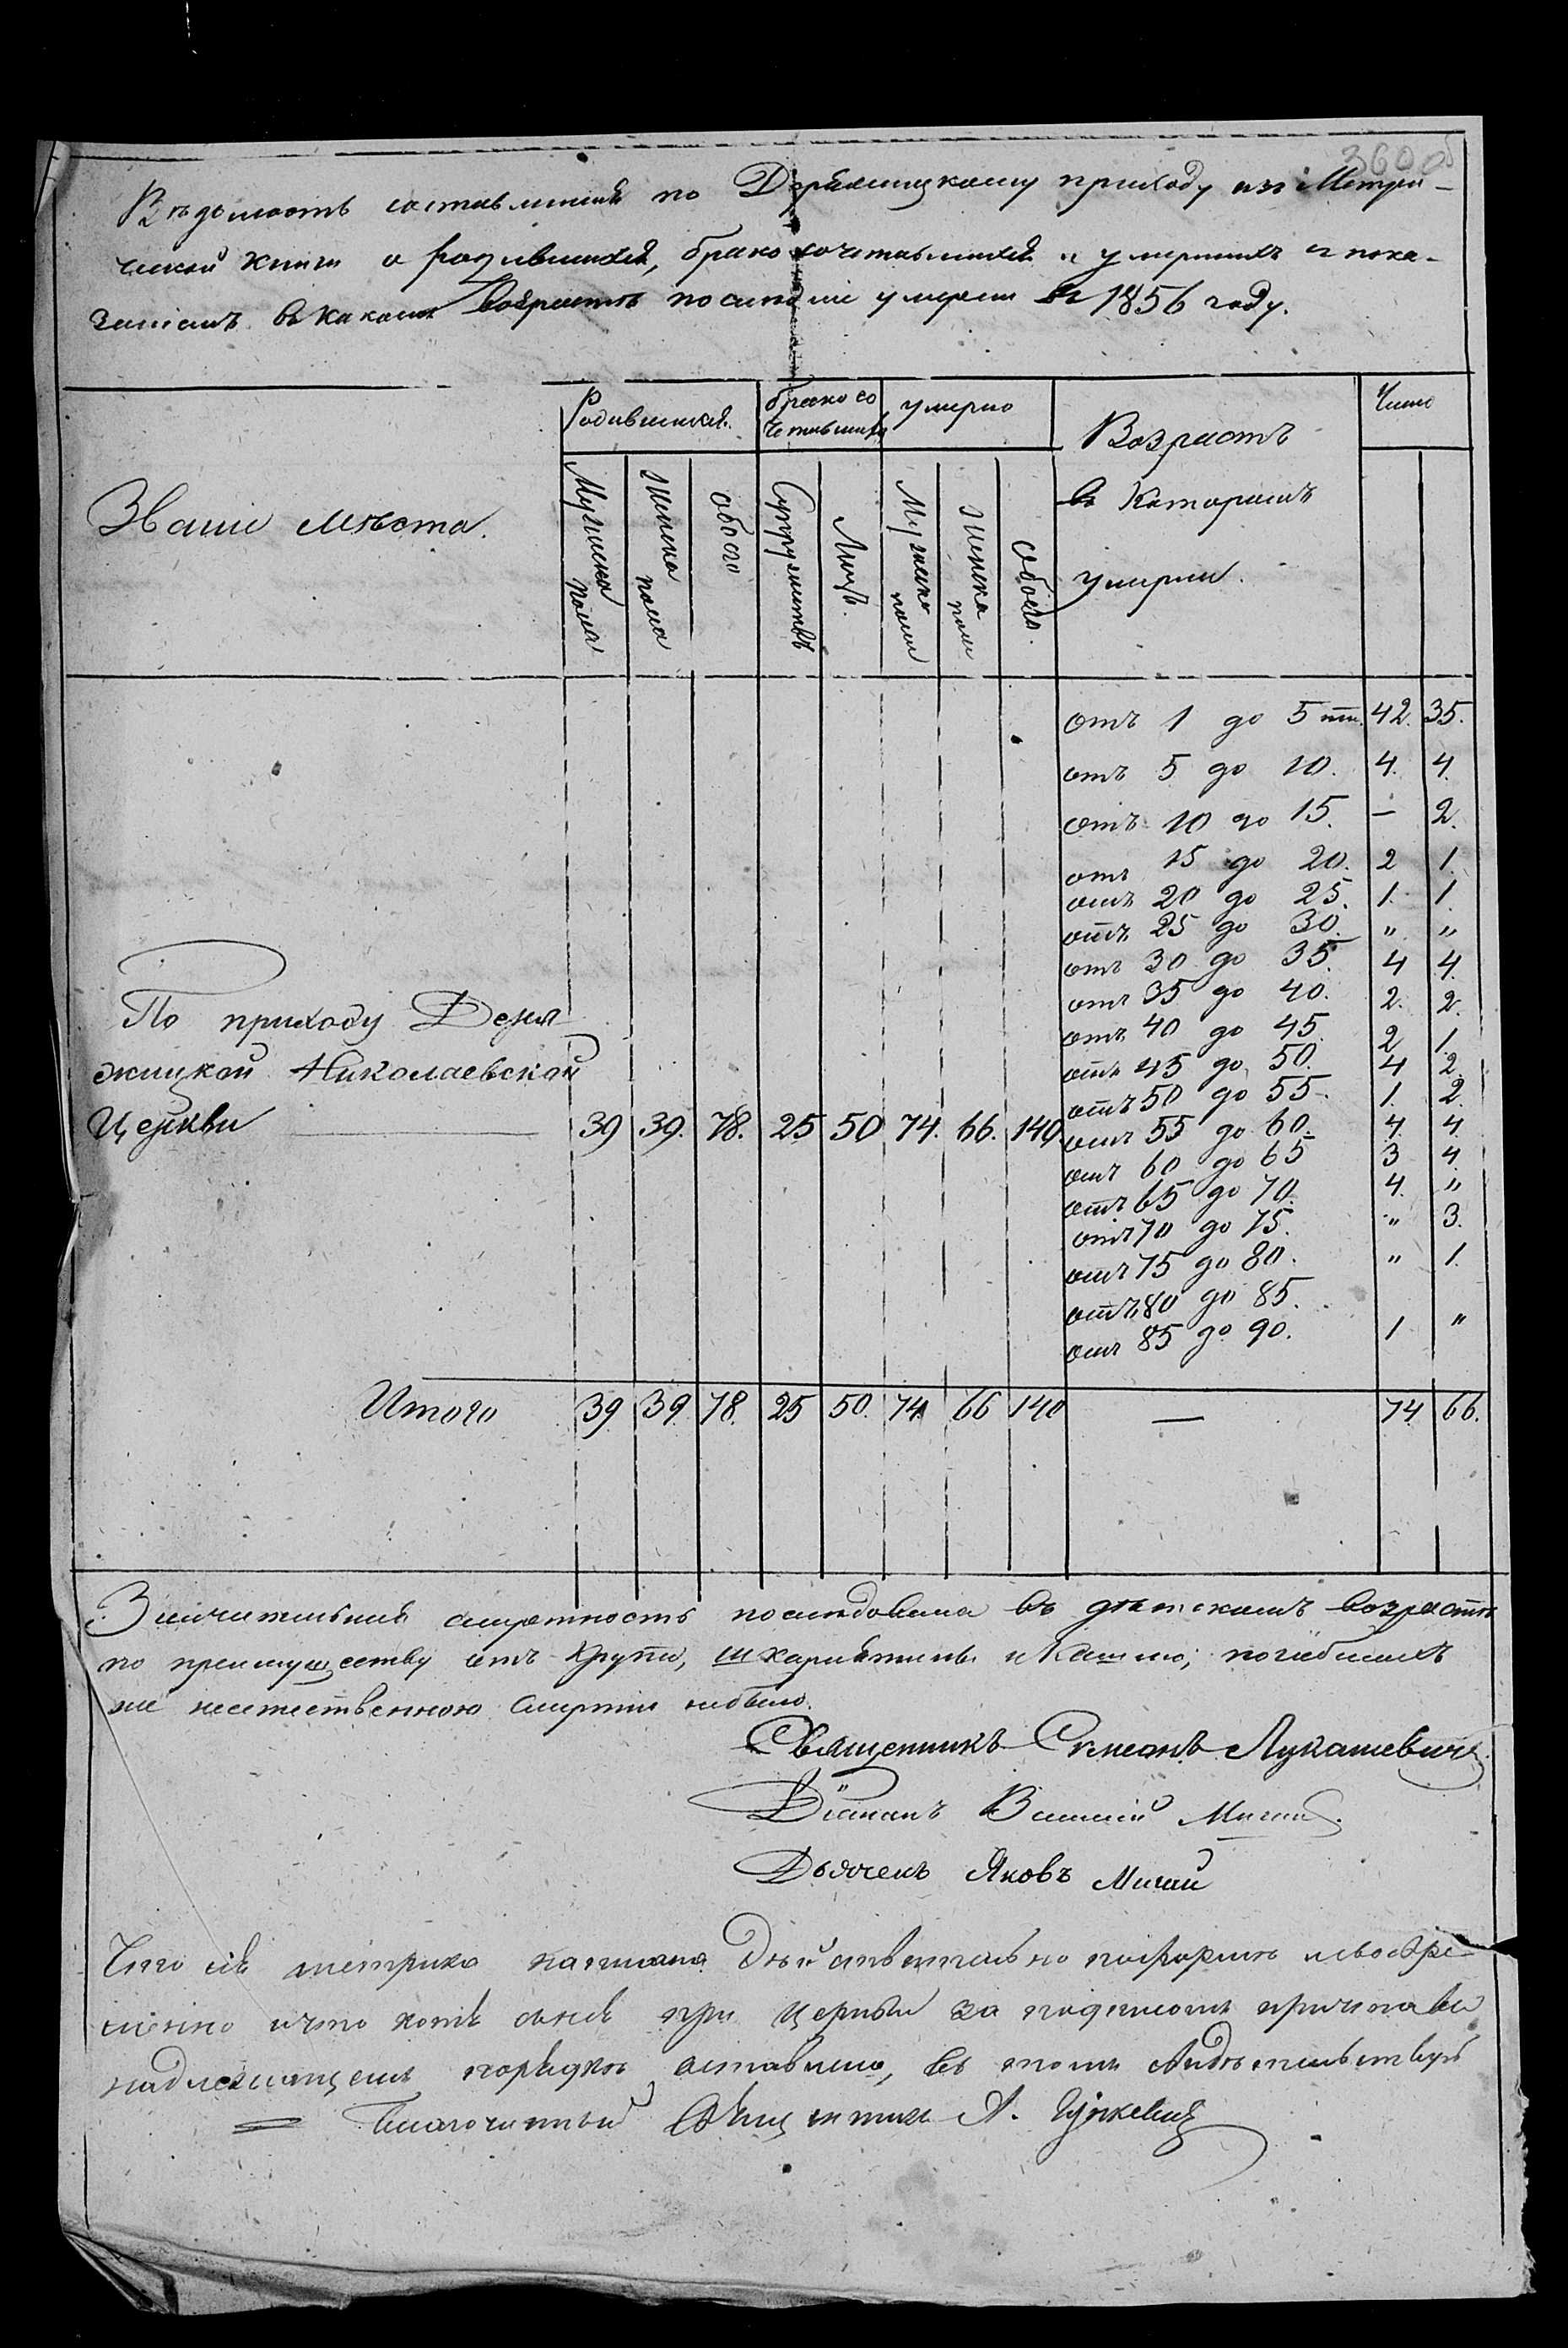 360 об
Вѣдомость составленная по Деряжицкому приходу изъ Метри-
ческой книги о родившихся, бракосочетавшихся и умершихъ съ пока-
заніемъ въ какомъ возрастѣ послѣдніе умерли въ 1856 году.
Званіе мѣста.
Родившихся.
бракосо
четавшихся
умерло
Возрастъ
въ которомъ
умерли.
Число
Мужеска пола
Женска пола
обоего
Супружествъ
Лицъ.
Мужеска пола
Женска пола
обоего.
отъ 1 до 5 лѣт. 42. 35.
отъ 5 до 10. 4. 4.
отъ 10 до 15. — 2.
отъ 15 до 20. 2 1.
отъ 20 до 25. 1. 1.
отъ 25 до 30. " "
отъ 30 до 35. 4 4.
отъ 35 до 40. 2. 2.
отъ 40 до 45. 2 1.
отъ 45 до 50. 4 2.
отъ 50 до 55. 1. 2.
отъ 55 до 60. 4. 4.
отъ 60 до 65 3 4.
отъ 65 до 70. 4. "
отъ 70 до 75. " 3.
отъ 75 до 80. " 1.
отъ 80 до 85.
отъ 85 до 90. 1 "
По приходу Деря
жицкой Николаевской
Церкви 39 39. 78. 25 50 74. 66. 140.
Итого 39 39. 78. 25 50. 74. 66 140 — 74 66.
Значительная смертность послѣдовала въ дѣтскомъ возрастѣ
по преимуществу отъ крупу, шкарлятины и кашлю; погибшихъ
же неестественною смертію небыло.
Священникъ Симеонъ Лукашевичъ.
Діаконъ Василій Мигай.
Дьячекъ Яковъ Мигай
Что сія метрика написана дѣйствительно пофорmѣ и своевре-
менно и что копія снея при церкви за подписомъ причта въ
надлежащемъ порядкѣ оставлена, въ томъ свидѣтельствую
= Благочинный Священникъ А.